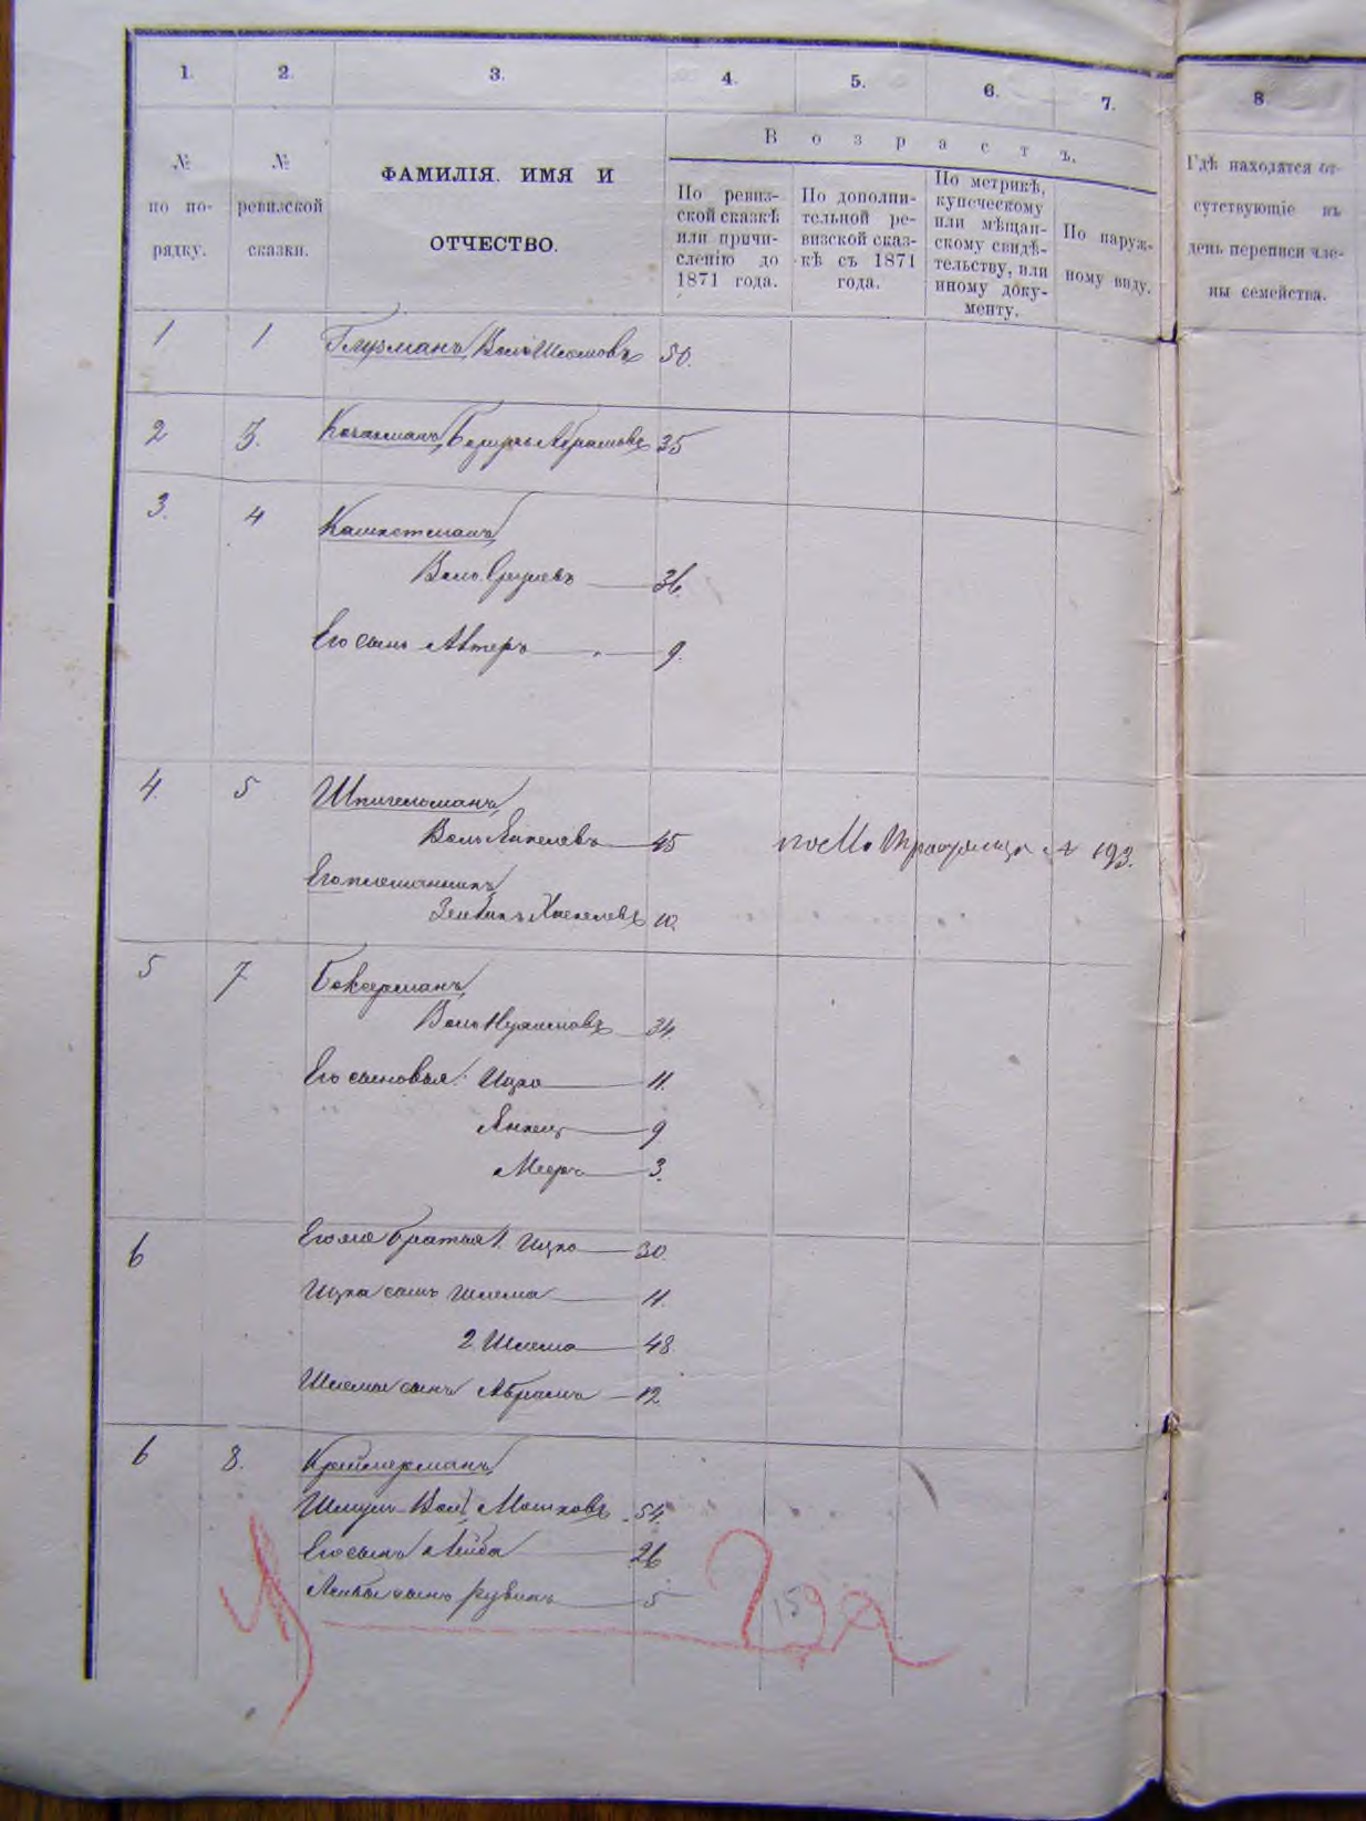 1. 2. 3. 4. 5. 6. 7. 8
№ по по-рядку.
№ ревизской сказки.
ФАМИЛІЯ. ИМЯ И
ОТЧЕСТВО.
Возрастъ.
По ревиз-
ской сказкѣ
или причи-
сленію до
1871 года.
По дополни-
тельной ре-
визской сказ-
кѣ съ 1871
года.
По метрикѣ,
купеческому
или мѣщан-
скому свидѣ-
тельству, или
иному доку-
менту.
По наруж-
ному виду.
Гдѣ находятся от-
сутствующіе въ
день переписи чле-
ны семейства.
1 1 Глузманъ Волъ Шлемовъ 50.
2 3. Абрамовъ 35
3. 4 Кашкетманъ
Волъ Сруловъ 36.
Его сынъ Автеръ 9.
4. 5 Шпигельманъ
Волъ Янкелевъ 45
193.
Его племянникъ
Хаскелевъ 10.
5 7 Боксерманъ
Волъ Нухимовъ 34.
Его сыновья: Ицко 11.
Янкель 9
Мееръ 3.
6 Его же братья 1. Ицко 30.
Ицка сынъ Шлема 11.
2 Шлема 48.
Шлемы сынъ Абрамъ 12
6 8. Креймерманъ
Шмуль-Волъ Мошковъ 54.
Его сынъ Лейба 26
Лейбы сынъ Рувинъ 5
159